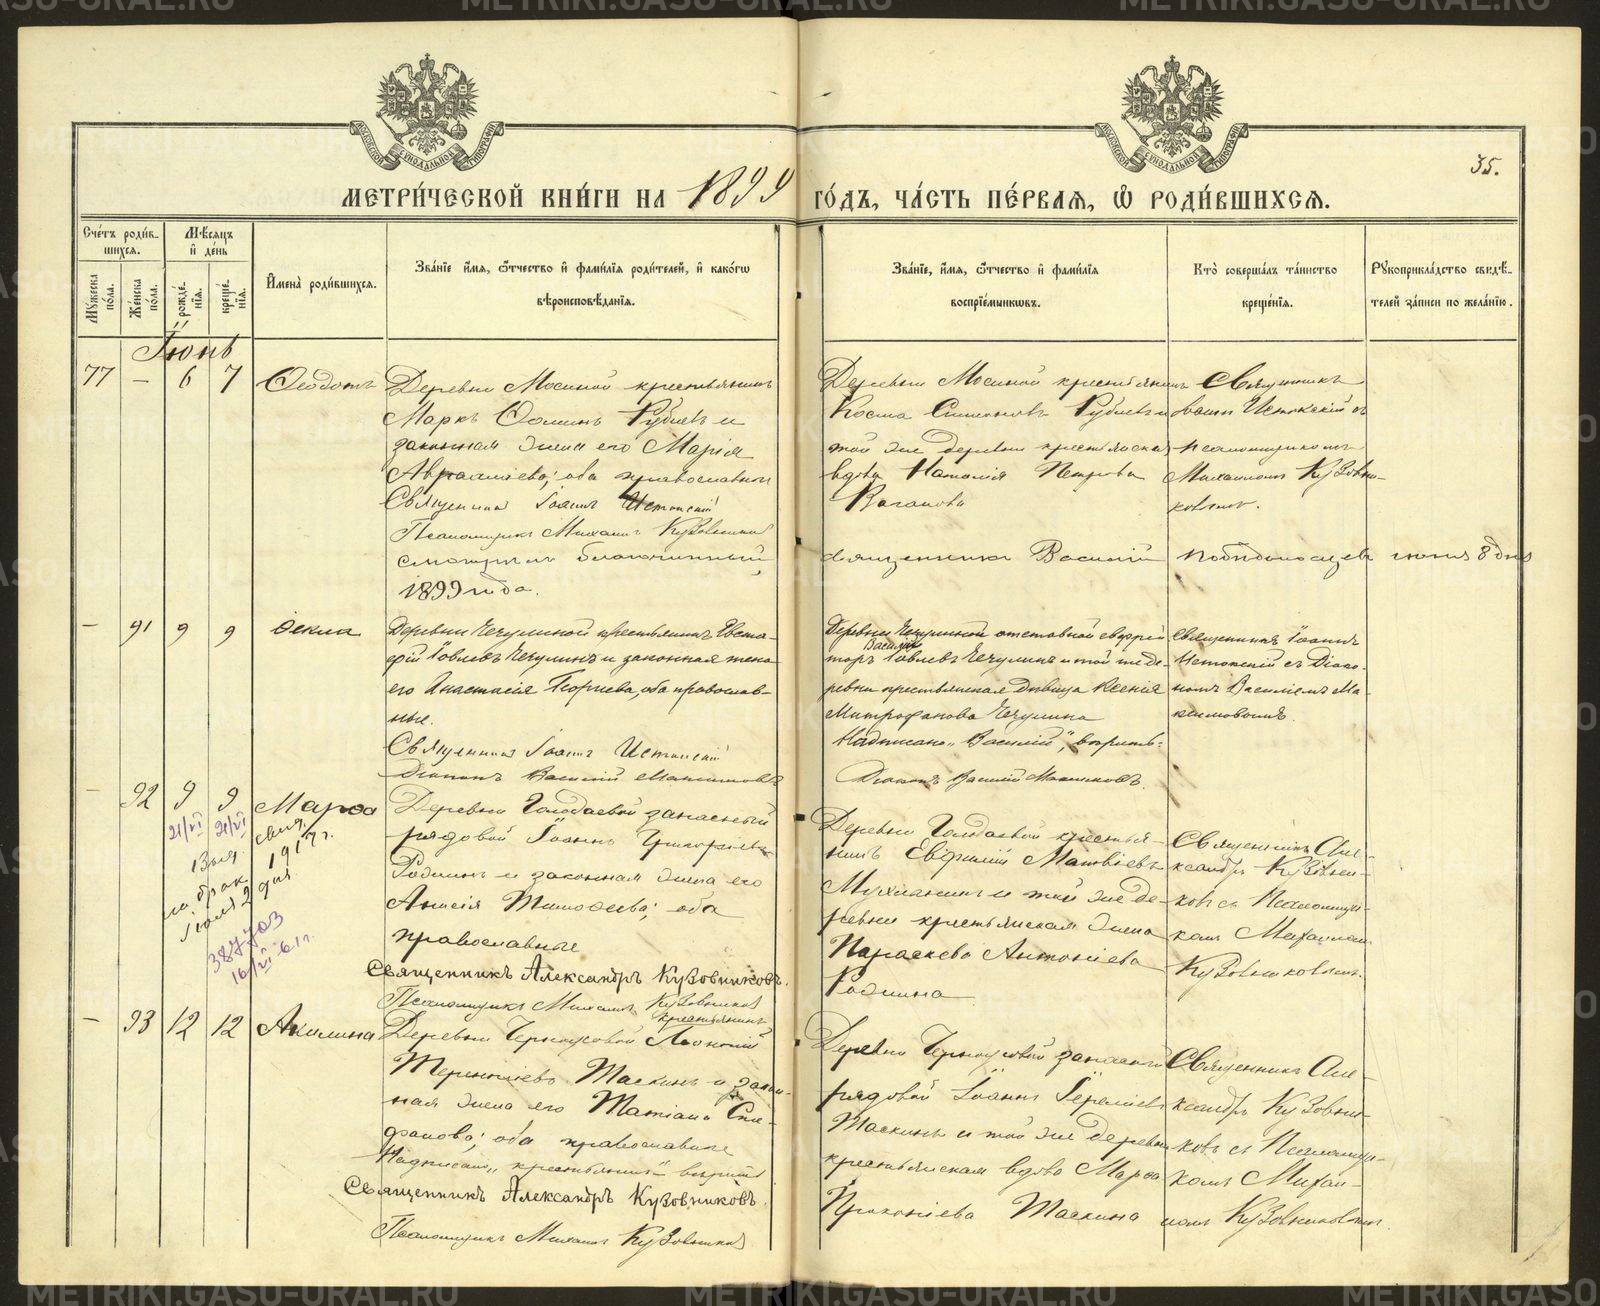 METRIKI.GASU-URAL.RU
35.
МЕТРИ́ЧЕСКОЙ КНИ́ГИ НА 1899 ГО́ДЪ, ЧА́СТЬ ПЕ́РВАѦ, Ѽ РОДИ́ВШИХСѦ.
Сче́тъ роди́в-
шихсѧ.
Мꙋ́жеска по́ла.
Же́нска по́ла.
Мѣ́сѧцъ и҆ де́нь
рожде́-
нїѧ.
креще́-
нїѧ.
И҆мена̀ роди́вшихсѧ.
Зва́нїе и҆́мѧ, ѻ҆́тчество и҆ фами́лїѧ роди́телей, и҆ како́гѡ
вѣроисповѣ́данїѧ.
Зва́нїе, и҆́мѧ, ѻ҆́тчество и҆ фами́лїѧ
воспрїе́мникѡвъ.
Кто̀ соверша́лъ та́инство
креще́нїѧ.
Рꙋкоприкла́дство свидѣ́-
телей за́писи по жела́нїю.
Іюнь
77 — 6 7 Ѳеодотъ
Деревни Мосиной крестьянинъ
Маркъ Ѳоминъ Рублевъ и
законная жена его Марія
Аврааміева; оба православны
Священникъ Іоаннъ Истокскій
Псаломщикъ Михаилъ Кузовников
смотрилъ благочинный
1899 года.
Деревни Мосиной крестьянинъ
Косма Симоновъ Рублевъ и
той же деревни крестьянская
вдова Наталія Петрова
Ваганова
священникъ Василій Победоносцевъ іюня 8 дня
Священникъ
Іоаннъ Истокскій съ
псаломщикомъ
Михаиломъ Кузовни-
ковымъ.
— 91 9 9 Ѳекла
Деревни Чечулиной крестьянинъ Евста-
фій Іовлевъ Чечулинъ и законная жена
его Анастасія Георгіева, оба православ-
ные.
Священникъ Іоаннъ Истокскій
Діаконъ Василій Максимовъ
Деревни Чечулиной отставной ефрей-
Василій
торъ Іовлевъ Чечулинъ и той же де-
ревни крестьянская дѣвица Ксенія
Митрофанова Чечулина
Надписано „Василій", вѣрить:
Діаконъ Василій Максимовъ.
Священникъ Іоаннъ
Истокскій съ Діако-
номъ Василіемъ Ма-
ксимовымъ.
— 92 9 9 Марѳа
21/VI 21/VI
Выд. свид.
на бракъ 1917 г.
Іюля 2 дня
387703
16/VI-61 г.
Деревни Голодаевой запасный
рядовой Іоаннъ Григорьевъ
Родинъ и законная жена его
Анисія Тимоѳеева; оба
православные
Священникъ Александръ Кузовниковъ.
Псаломщикъ Михаилъ Кузовников
Деревни Голодаевой крестья-
нинъ Евфимій Матвіевъ
и той же де-
ревни крестьянская жена
Параскева Антоніева
Родина
Священникъ Але-
ксандръ Кузовни-
ковъ съ Псаломщи-
комъ Михаиломъ
Кузовниковымъ.
— 93 12 12 Акилина
крестьянинъ
Деревни Черноусовой Леонтій
Терентіевъ Таскинъ и закон-
ная жена его Татіана Сте-
фанова; оба православные
Надписано „крестьянинъ" вѣрить
Священникъ Александръ Кузовниковъ.
Псаломщикъ Михаилъ Кузовников
Деревни Черноусовой запасный
рядовой Іоаннъ Іереміевъ
Таскинъ и той же деревни
крестьянская вдова Марѳа
Прокопіева Таскина
Священникъ Але-
ксандръ Кузовни-
ковъ съ Псаломщи-
комъ Михаи-
ломъ Кузовниковымъ.